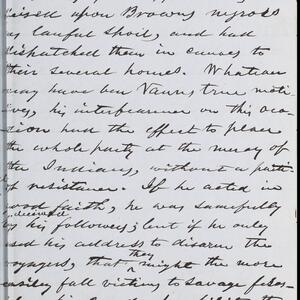 seized upon Browns negroes
as lawful spoil, and had
dispatched them in canoes to
their several homes. Whatever
may have ben Vanns, true moti
ves, his interfearance on this oca
sion had the effect to place
the whole party at the mercy of
the Indians, without a
of resistance. If he acted in
good faith, he was
deceived
by his followers; but if he only
used his address to disarm the
they
voyagers, that might the more
easily fall victims to savage